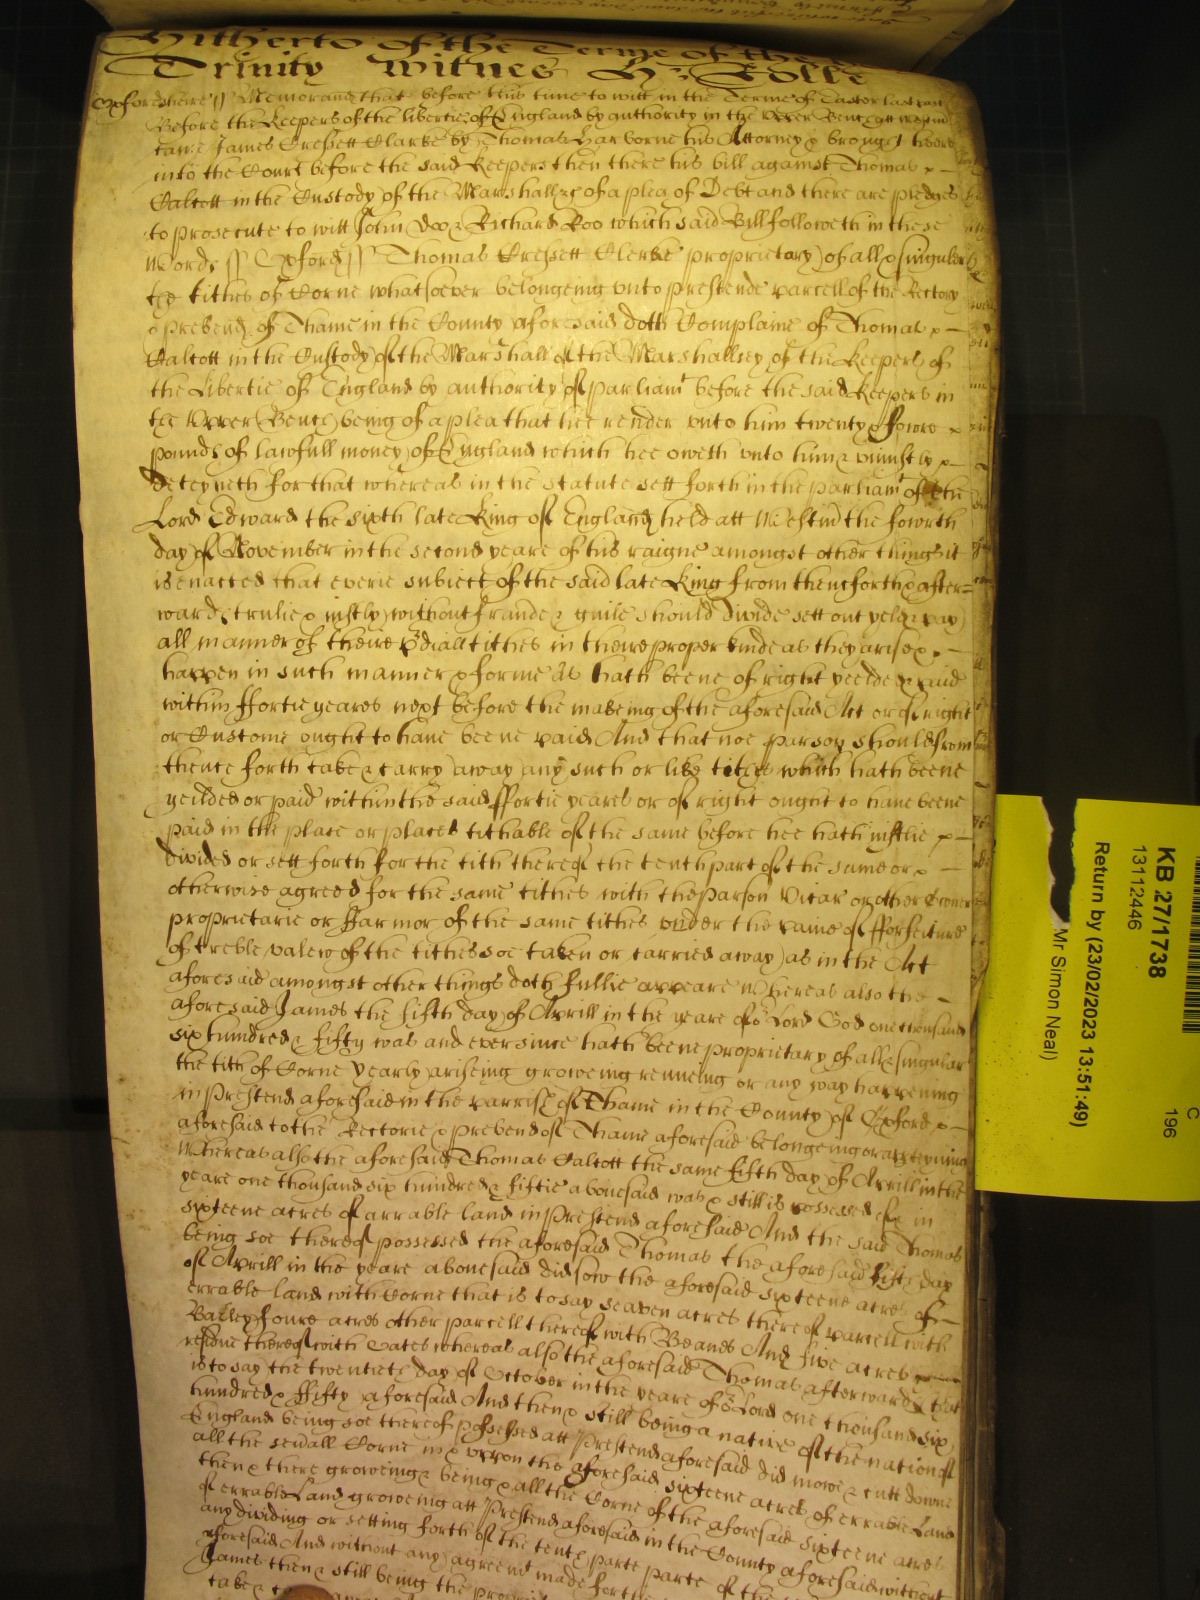 Hitherto of the Terme of the
Trinity witnes H: Rolle
Oxfordsheire ss Memorand that before this time to witt in the Terme of Easter last past
Before the Keepers of the libertie of England by authority in the Upper Bench att Westm
came James Cressett Clarke by Thomas Harborne his Attorney & brought heere
into the Court before the said Keepers then there his bill against Thomas
Calcott in the Custody of the Marshall &c of a plea of Debt and there are pledges
to prosecute to witt John Doo & Richard Roo which said Bill followeth in these
Words ss Oxford ss Thomas Cressett Clerke proprietary of all & singuler
the tithes of Corne whatsoever belongeing unto Prestende parcell of the Rectory
& prebend of Thame in the County aforesaid doth Complaine of Thomas
Calcott in the Custody of the Marshall of the Marshallsey of the Keepers of
the Libertie of England by authority of parliamt before the said Keepers in
the Upper Bench being of a plea that hee render unto him twenty & fowre
pounds of lawfull money of England which hee oweth unto him & uniustly
deteyneth for that whereas in the statute sett forth in the parliamt of the
Lord Edward the sixth late King of England held att Westmr the fowrth
day of November in the second yeare of his raigne amongst other things it
is enacted that everie subiect of the said late King from thenceforth & after=
wards trulie & iustly without fraude & guile should divide sett out yeld & pay
all manner of theire prdiall tithes in theire proper kinde as they arise &
happen in such manner & forme As hath beene of right yeelded & paid
within ffortie yeares next before the makeing of the aforesaid Act or of right
or Custome ought to have beene paid And that noe parson should from
thence forth take & carry away any such or like tithes which hath beene
yeilded or paid within the said ffortie yeares or of right ought to have beene
paid in the place or places tithable of the same before hee hath iustlie
divided or sett forth for the tith thereof the tenth part of the same or
otherwise agreed for the same tithes with the parson Vicar or other owner
proprietarie or ffarmor of the same tithes under the paine of fforfeiture
of treble valew of the tithes soe taken or carried away as in the Act
aforesaid amongst other things doth fullie appeare Whereas also the
aforesaid James the fifth day of Aprill in the yeare of or Lord God one thousand
six hundred & fifty was and ever since hath beene proprietary of all & singular
the tith of Corne yearly ariseing groweing renueing or any way happening
in Prestend aforesaid in the parrish of Thame in the County of Oxford
aforesaid to the Rectorie & prebend of Thame aforesaid belongeing or apperteyning
Whereas also the aforesaid Thomas Calcott the same fifth day of Aprill in the
yeare one thousand six hundred & fiftie abovesaid was & still is possessed of & in
sixteene acres of arrable land in Prestend aforesaid And the said Thomas
being soe thereof possessed the aforesaid Thomas the aforesaid fifth day
of Aprill in the yeare abovesaid did sow the aforesaid sixteene acres of
errable land with Corne that is to say seaven acres thereof parcell with
Barley foure acres other parcell thereof with Beanes And five acres
residue thereof with Oates whereas also the aforesaid Thomas afterwards that
is to say the twentieth day of October in the yeare of or Lord one thousand six
hundred & ffifty aforesaid And then & still being a native of the nation of
England being soe thereof possessed att Prestend aforesaid did mowe & cutt downe
all the sevrall Corne in & uppon the aforesaid sixteene acres of errable Land
then & there groweing & being & all the Corne of the aforesaid sixteene acres
of errable Land groweing att Prestend aforesaid in the County aforesaid without
any dividing or setting forth of the tenth parte parte of the
aforesaid And without any agreemt made for the
James then & still being the
take &
KB 27/1738
13112446
Return by (23/02/2023 13:51:49)
Mr Simon Neal)
C
196